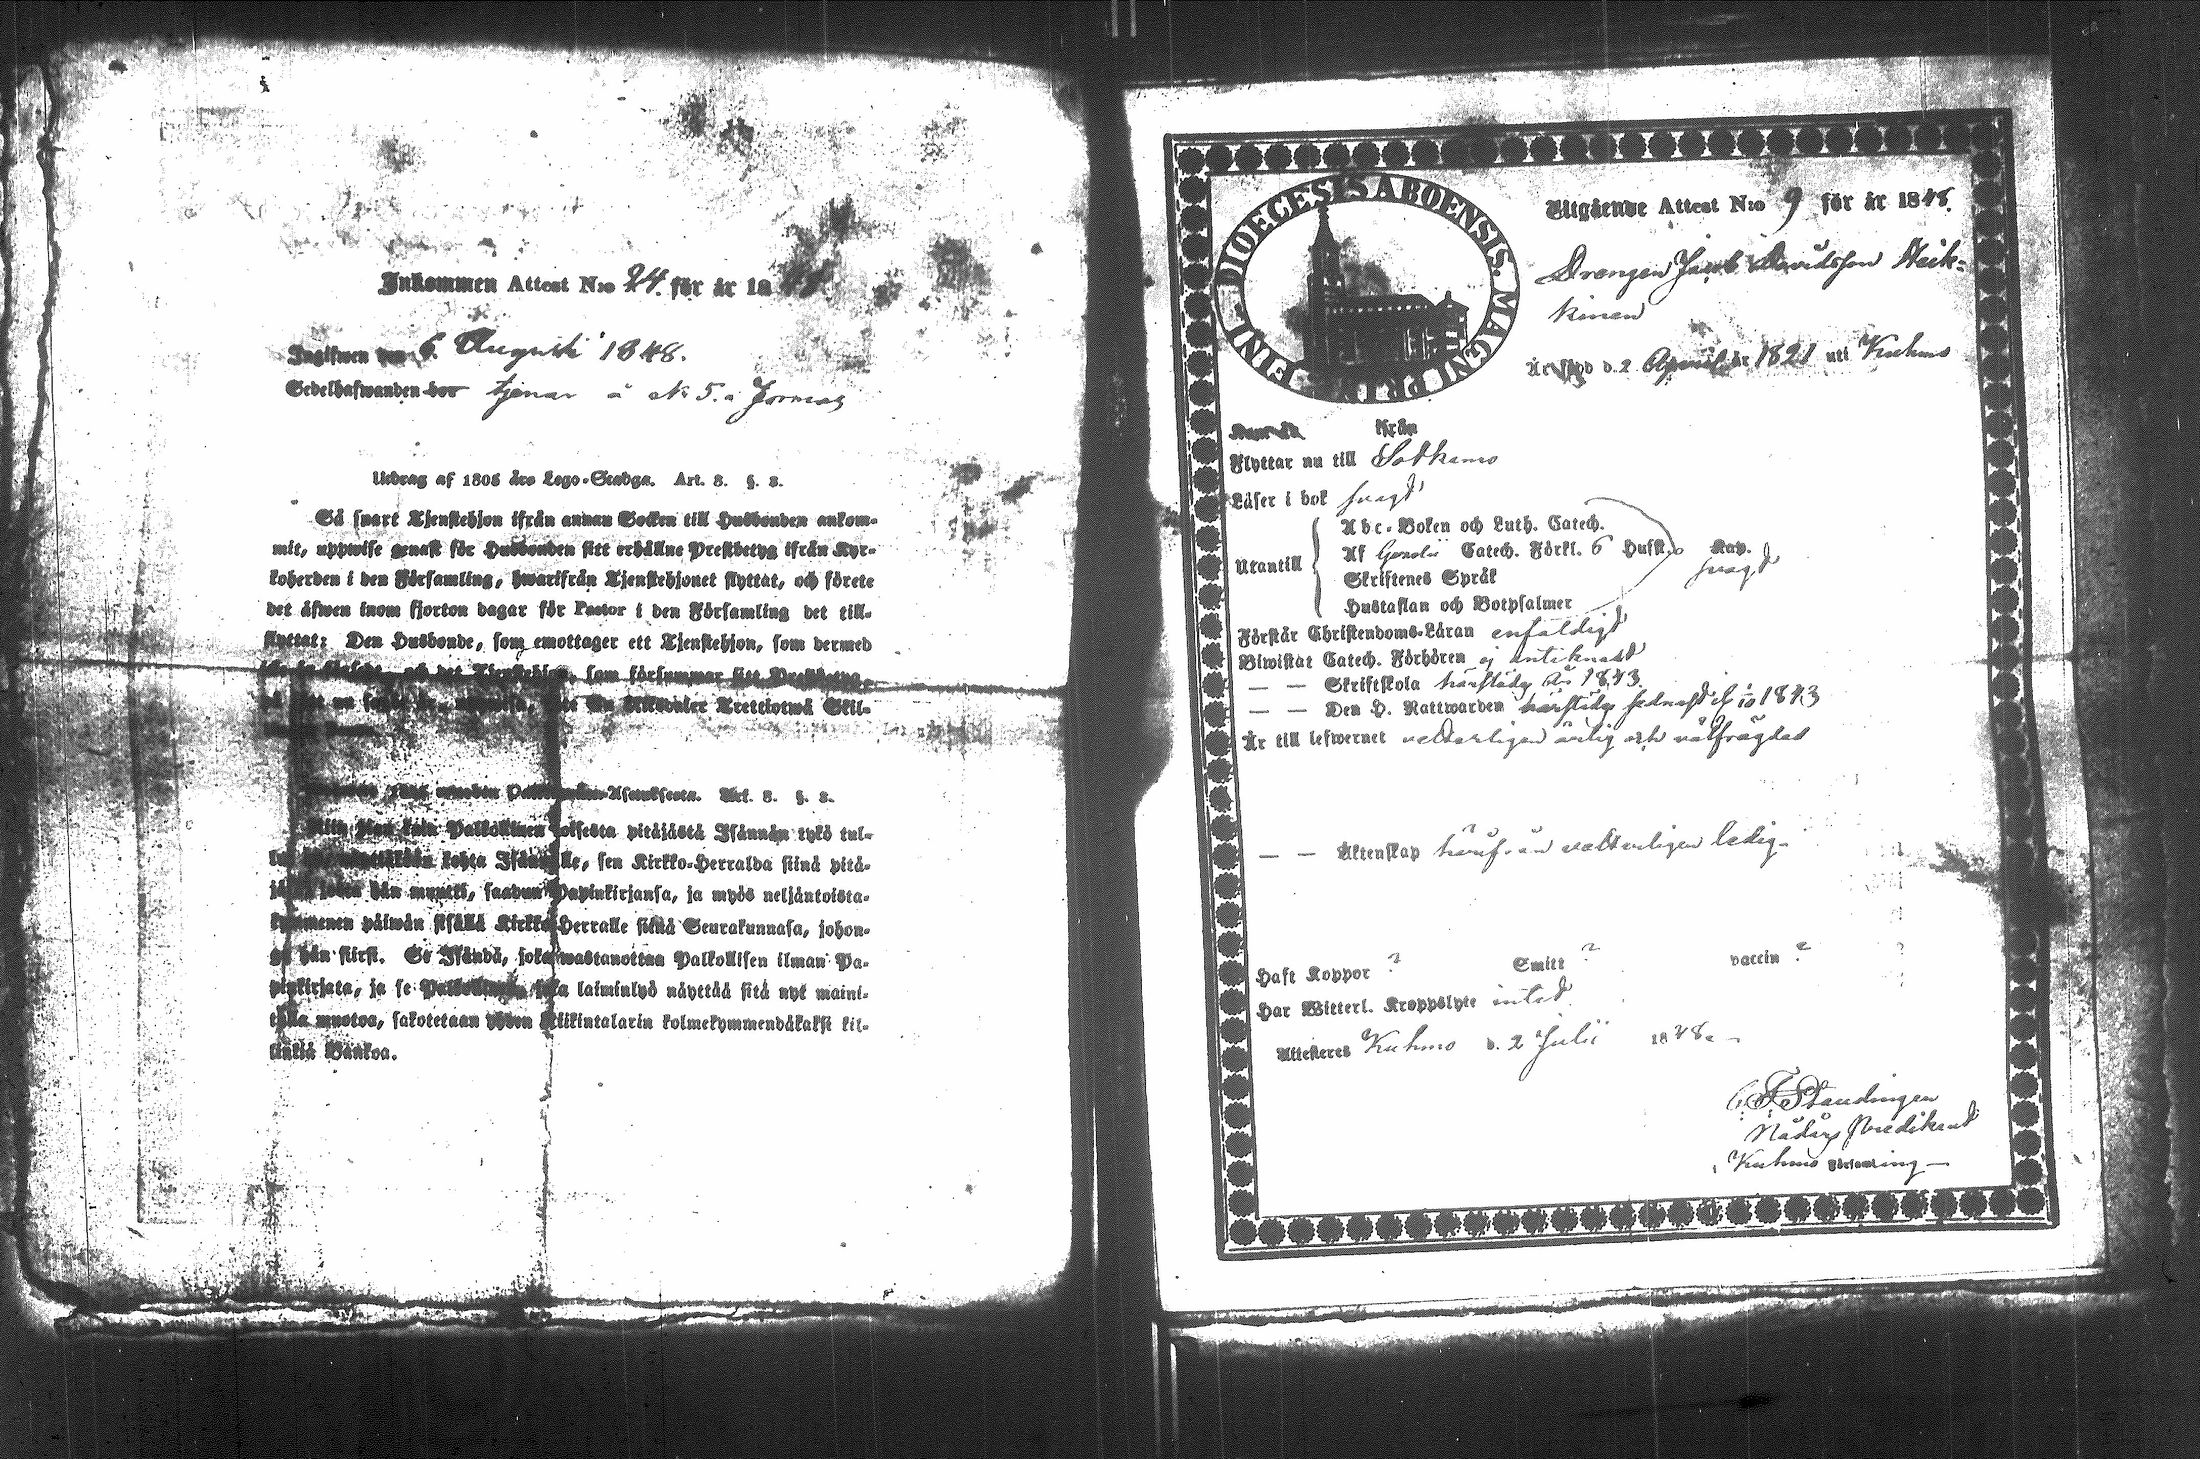 Inkommen Attest N:o 24. för år 18
Ingifwen den 6. Augusti 1848.
Sedelhafwanden bor tjenar å No 5. i Jormas
Utdrag af 1805 års Lego-Stadga. Art. 3. §. 3.
Så snart Tjenstehjon ifrån annan Socken till Husbonden ankom-
mit, uppwise genast för Husbonden sitt erhållne Prestbetyg ifrån Kyr-
koherden i den Församling, hwarifrån Tjenstehjonet flyttat, och förete
det äfwen inom fjorton dagar för Pastor i den Församling det till-
flyttat: Den Husbonde, som emottager ett Tjenstehjon, som dermed
och det Tjenstehjon, som försummar sitt Prestbetyg
Riksdaler Trettiotwå Skil-
Asetuksesta. Art. 3. §. 3.
Niin pian kuin Palkollinen toisesta pitäjästä Isännän tykö tul-
kohta Isännälle, sen Kirkko-Herralda siinä pitä-
hän muutti, saadun Papinkirjansa, ja myös neljäntoista-
kymmenen päiwän sisällä Kirkko-Herralle siinä Seurakunnasa, johon-
ga hän siirsi. Se Isändä, joka wastanottaa Palkollisen ilman Pa-
pinkirjata, ja se Palkollinen, joka laiminlyö näyttää sitä nyt maini-
tulla muotoa, sakotetaan yhden Riikintalarin kolmekymmendäkaksi kil-
linkiä Bankoa.
DIOECESIS ABOENSIS. MAGNI PRINC. FINL.
Utgående Attest N:o 9 för år 1848.
Drengen Jacob Davidsson Heik-
kinen
Är född d. 2 April år 1821 uti Kuhmo
Kom ifrån
Flyttar nu till Sotkamo
Läser i bok svagt
Abc-Boken och Luth. Catech.
Utantill Af Catech. Förkl. 6 Hufst. Kap. svagt
Skriftenes Språk
Hustaflan och Botpsalmer
Förstår Christendoms-Läran enfaldigt
Biwistat Catech. Förhören ej antecknadt
— — Skriftskola härstädes År 1843.
— — Den H. Nattwarden härstädes sednast 1/10 1843
Är till lefwernet veterligen ärlig och välfrägdad
— — Äktenskap härifrån vetterligen ledig.
Haft Koppor ? Smitt ? vaccin ?
Har Witterl. Kroppslyte intet
Attesteres Kuhmo d. 2 Julii 1848.
Nådårs Predikant
Kuhmo Församling